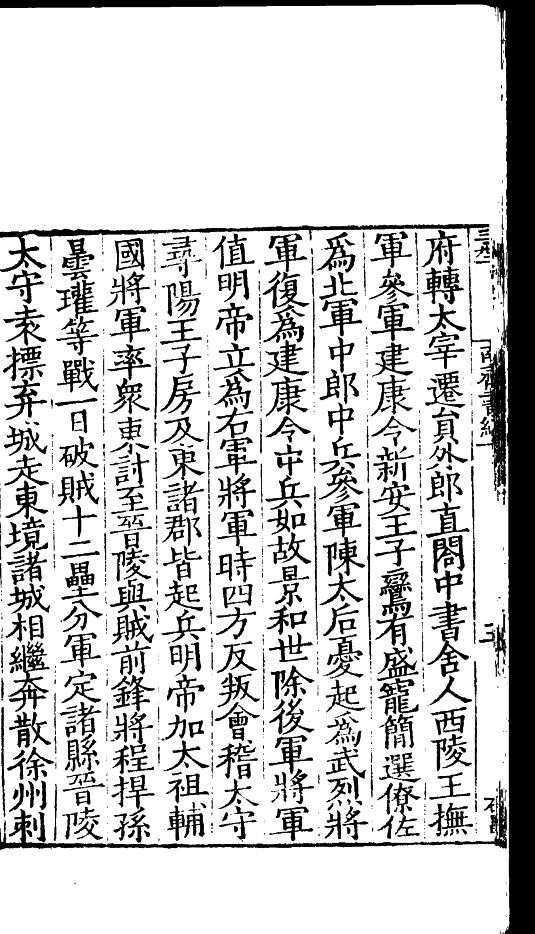 府轉太宰遷員外郎直閤中書舍人西陵王撫
軍參軍建康令新安王子鸞有盛寵簡選僚佐
爲北軍中郎中兵參軍陳太后憂起爲武烈將
軍復爲建康令中兵如故景和世除後軍將軍
值明帝立爲右軍將軍時四方反叛會稽太守
尋陽王子房及東諸郡皆起兵明帝加太祖輔
國將軍率衆東討至晉陵與賊前鋒將程捍孫
曇瓘等戰一日破賊十二壘分軍定諸縣晉陵
太守袁摽弃城走東境諸城相繼奔散徐州刺